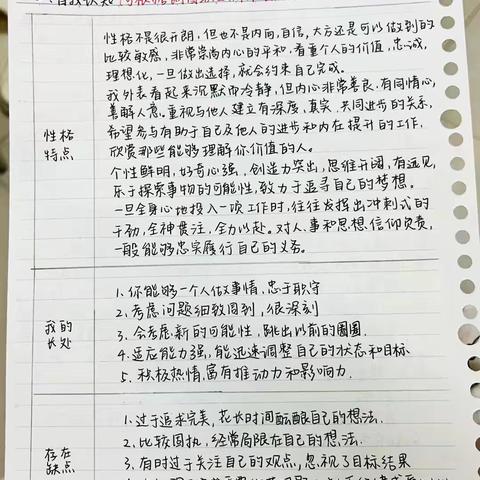 自我认知
性格不是很开朗,但也不是内向,自信,大方还是可以做到的
比较敏感,非常崇尚内心的平和,看重个人的价值,忠诚,
理想化,一旦做出选择,就会约束自己完成。
我外表看起来沉默而冷静,但内心非常善良,有同情心,
善解人意。重视与他人建立有深度、真实、共同进步的关系,
希望参与有助于自己及他人的进步和内在提升的工作,
欣赏那些能够理解你价值的人。
个性鲜明,好奇心强,创造力突出,思维开阔,有远见,
乐于探索事物的可能性,致力于追寻自己的梦想。
一旦全身心地投入一项工作时,往往发挥出冲刺式的
干劲,全神贯注,全力以赴。对人、事和思想信仰负责,
一般能够忠实履行自己的义务。
性格
特点
1、你能够一个人做事情,忠于职守
2、考虑问题细致周到,很深刻
3、会考虑新的可能性,跳出以前的圈圈.
4、适应能力强,能迅速调整自己的状态和目标
5、积极热情,富有推动力和影响力.
我的
长处
1、过于追求完美,花长时间酝酿自己的想法.
2、比较固执,经常局限在自己的想法.
3、有时过于关注自己的观点,忽视了目标结果
存在
缺点